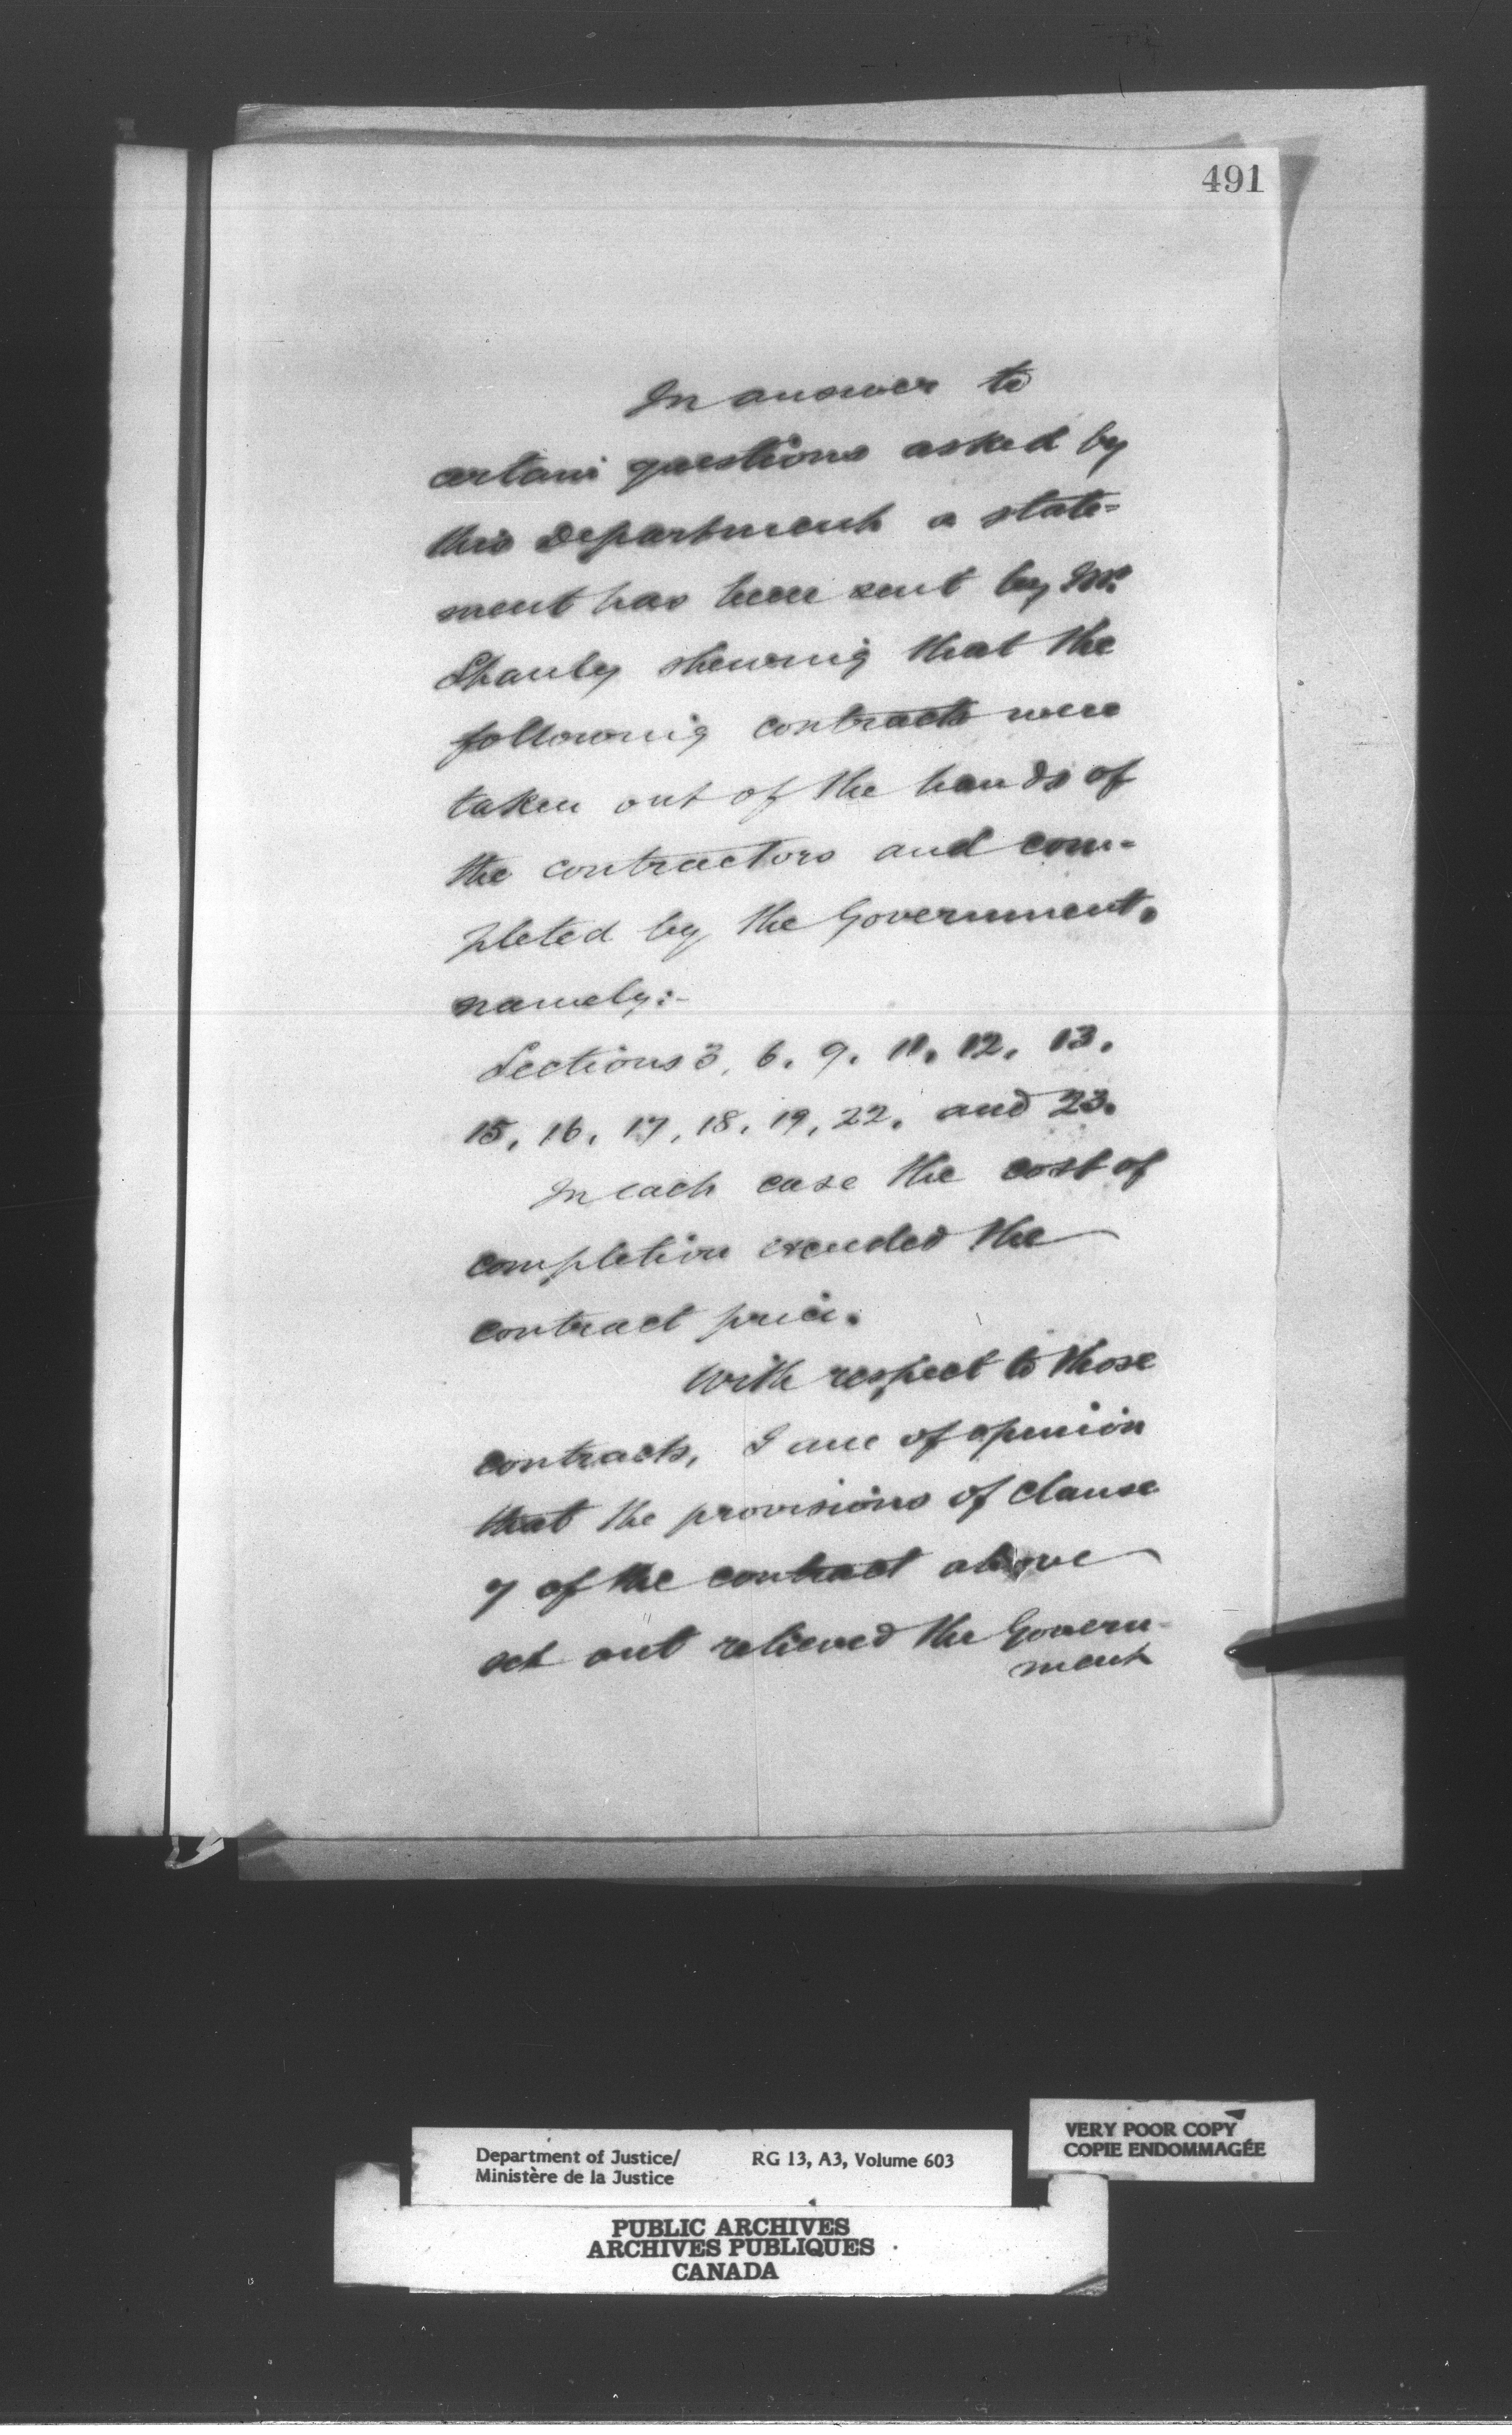 491
In answer to
certain questions asked by
this Department a state=
ment has been sent by Mr.
Shanly shewing that the
following contracts were
taken out of the hands of
the contractors and com-
pleted by the Government,
namely:-
Sections 3, 6, 9, 11, 12, 13,
15, 16, 17, 18, 19, 22, and 23.
In each case the cost of
completion exceeded the
contract price.
With respect to those
contracts, I am of opinion
that the provisions of clause
7 of the contract above
set out relieved the Govern-
ment
VERY POOR COPY
COPIE ENDOMMAGÉE
Department of Justice/ RG 13, A3, Volume 603
Ministère de la Justice
PUBLIC ARCHIVES
ARCHIVES PUBLIQUES
CANADA